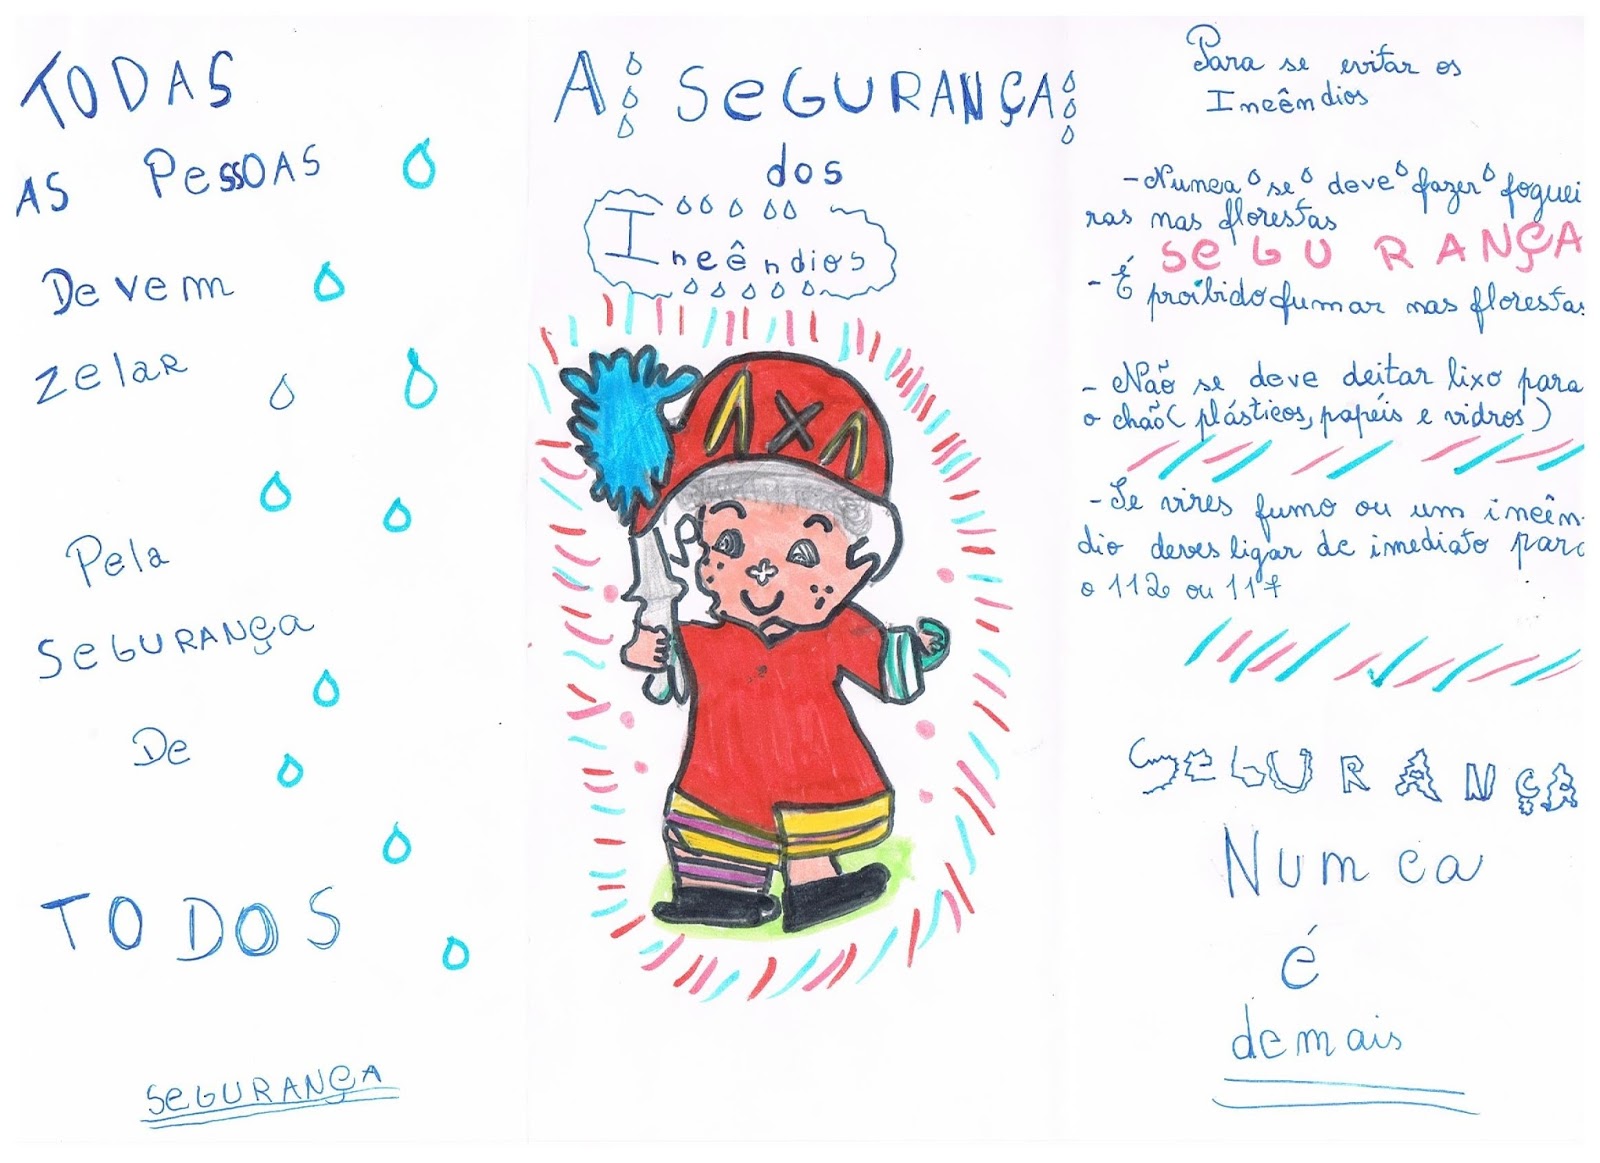 TODAS
AS PeSSOAS
Devem
Zelar
Pela
SeGURANÇa
De
TODOS
SeGURANÇA
A SeGURANÇA
dos
Incêndios
ΛXΛ
Para se evitar os
Incêndios
-Nunca se deve fazer foguei
ras nas florestas
SeGURANÇA
- É proibido fumar nas florestas
- Não se deve deitar lixo para
o chão (plásticos, papéis e vidros)
- Se vires fumo ou um incên-
dio deves ligar de imediato para
o 112 ou 117
SeGURANÇA
Nunca
é
demais